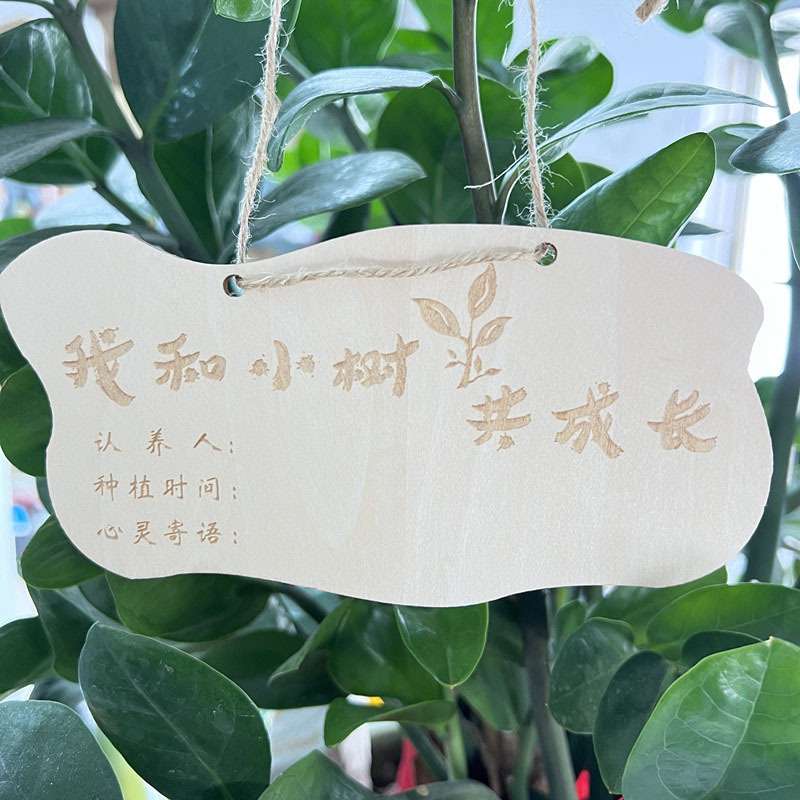 我和小树
共成长
认养人:
种植时间:
心灵寄语: